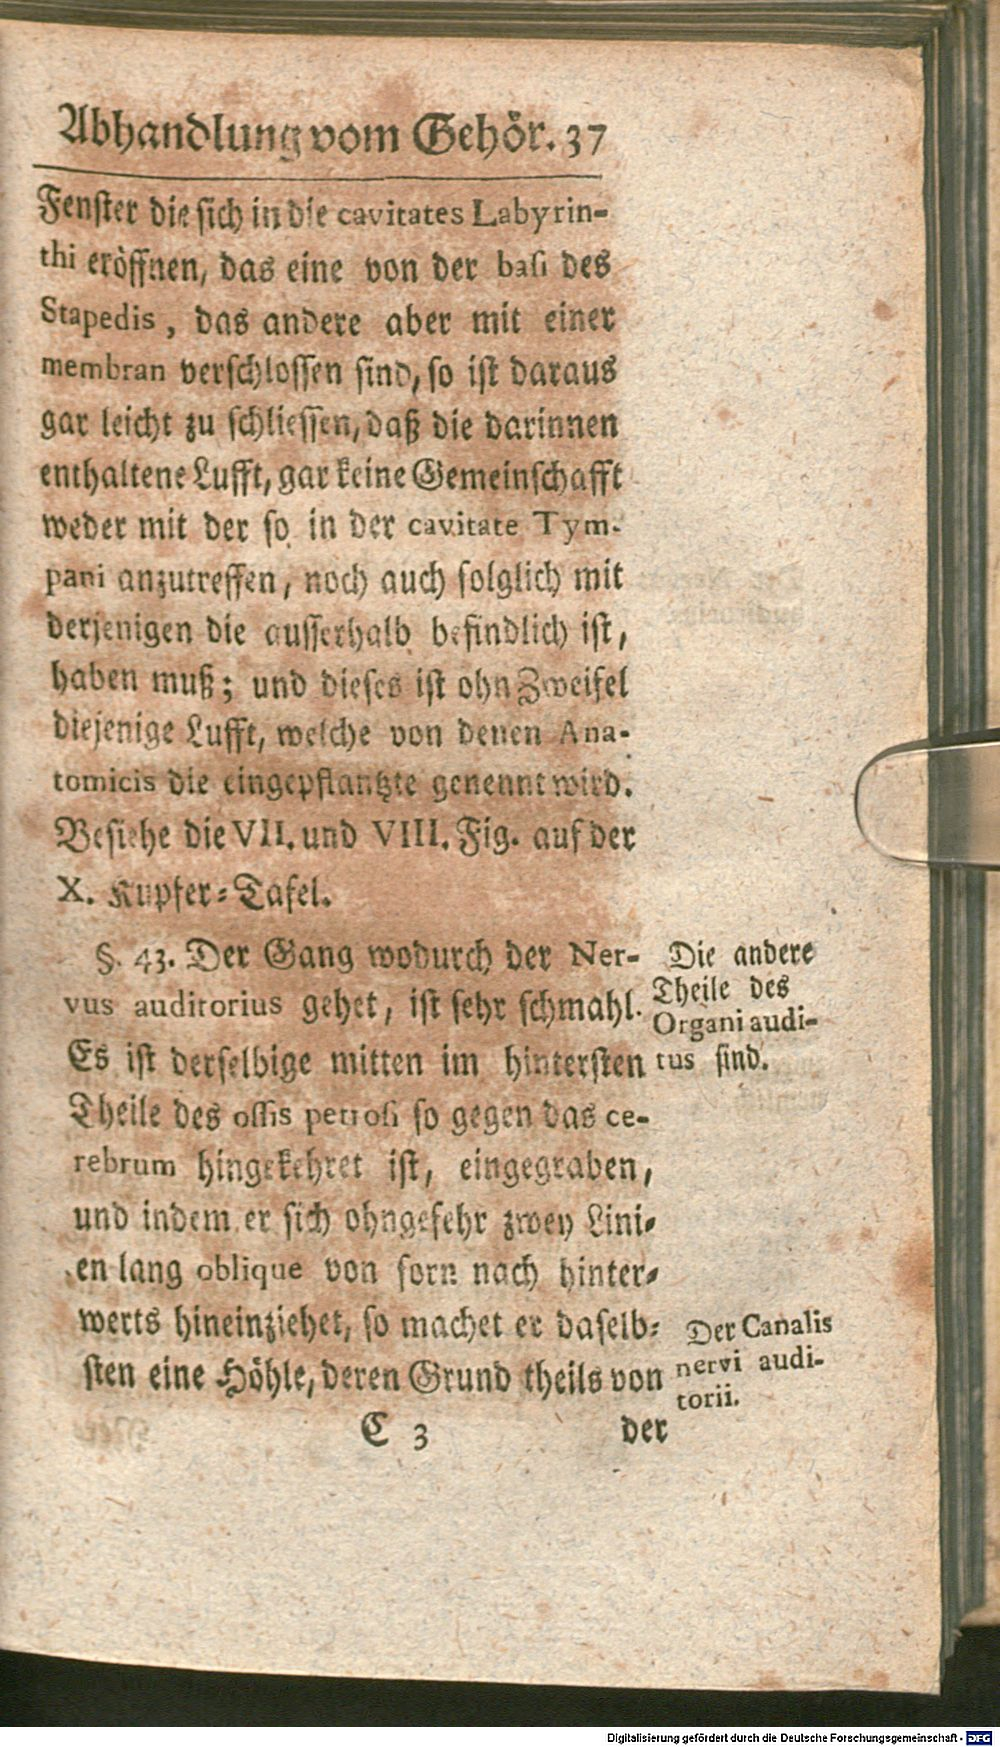 Abhandlung vom Gehör. 37
Fenster die sich in die cavitates Labyrin-
thi eröffnen, das eine von der basi des
Stapedis, das andere aber mit einer
membran verschlossen sind, so ist daraus
gar leicht zu schliessen, daß die darinnen
enthaltene Lufft, gar keine Gemeinschafft
weder mit der so in der cavitate Tym-
pani anzutreffen, noch auch folglich mit
derjenigen die ausserhalb befindlich ist,
haben muß; und dieses ist ohn Zweifel
diejenige Lufft, welche von denen Ana-
tomicis die eingepflantzte genennt wird.
Besiehe die VII. und VIII. Fig. auf der
X. Kupfer-Tafel.
§. 43. Der Gang wodurch der Ner-
vus auditorius gehet, ist sehr schmahl.
Es ist derselbige mitten im hintersten
Theile des ossis petrosi so gegen das ce-
rebrum hingekehret ist, eingegraben,
und indem er sich ohngefehr zwey Lini-
en lang oblique von forn nach hinter-
werts hineinziehet, so machet er daselb-
sten eine Höhle, deren Grund theils von
Die andere
Theile des
Organi audi-
tus sind.
Der Canalis
nervi audi-
torii.
C 3 der
Digitalisierung gefördert durch die Deutsche Forschungsgemeinschaft - DFG